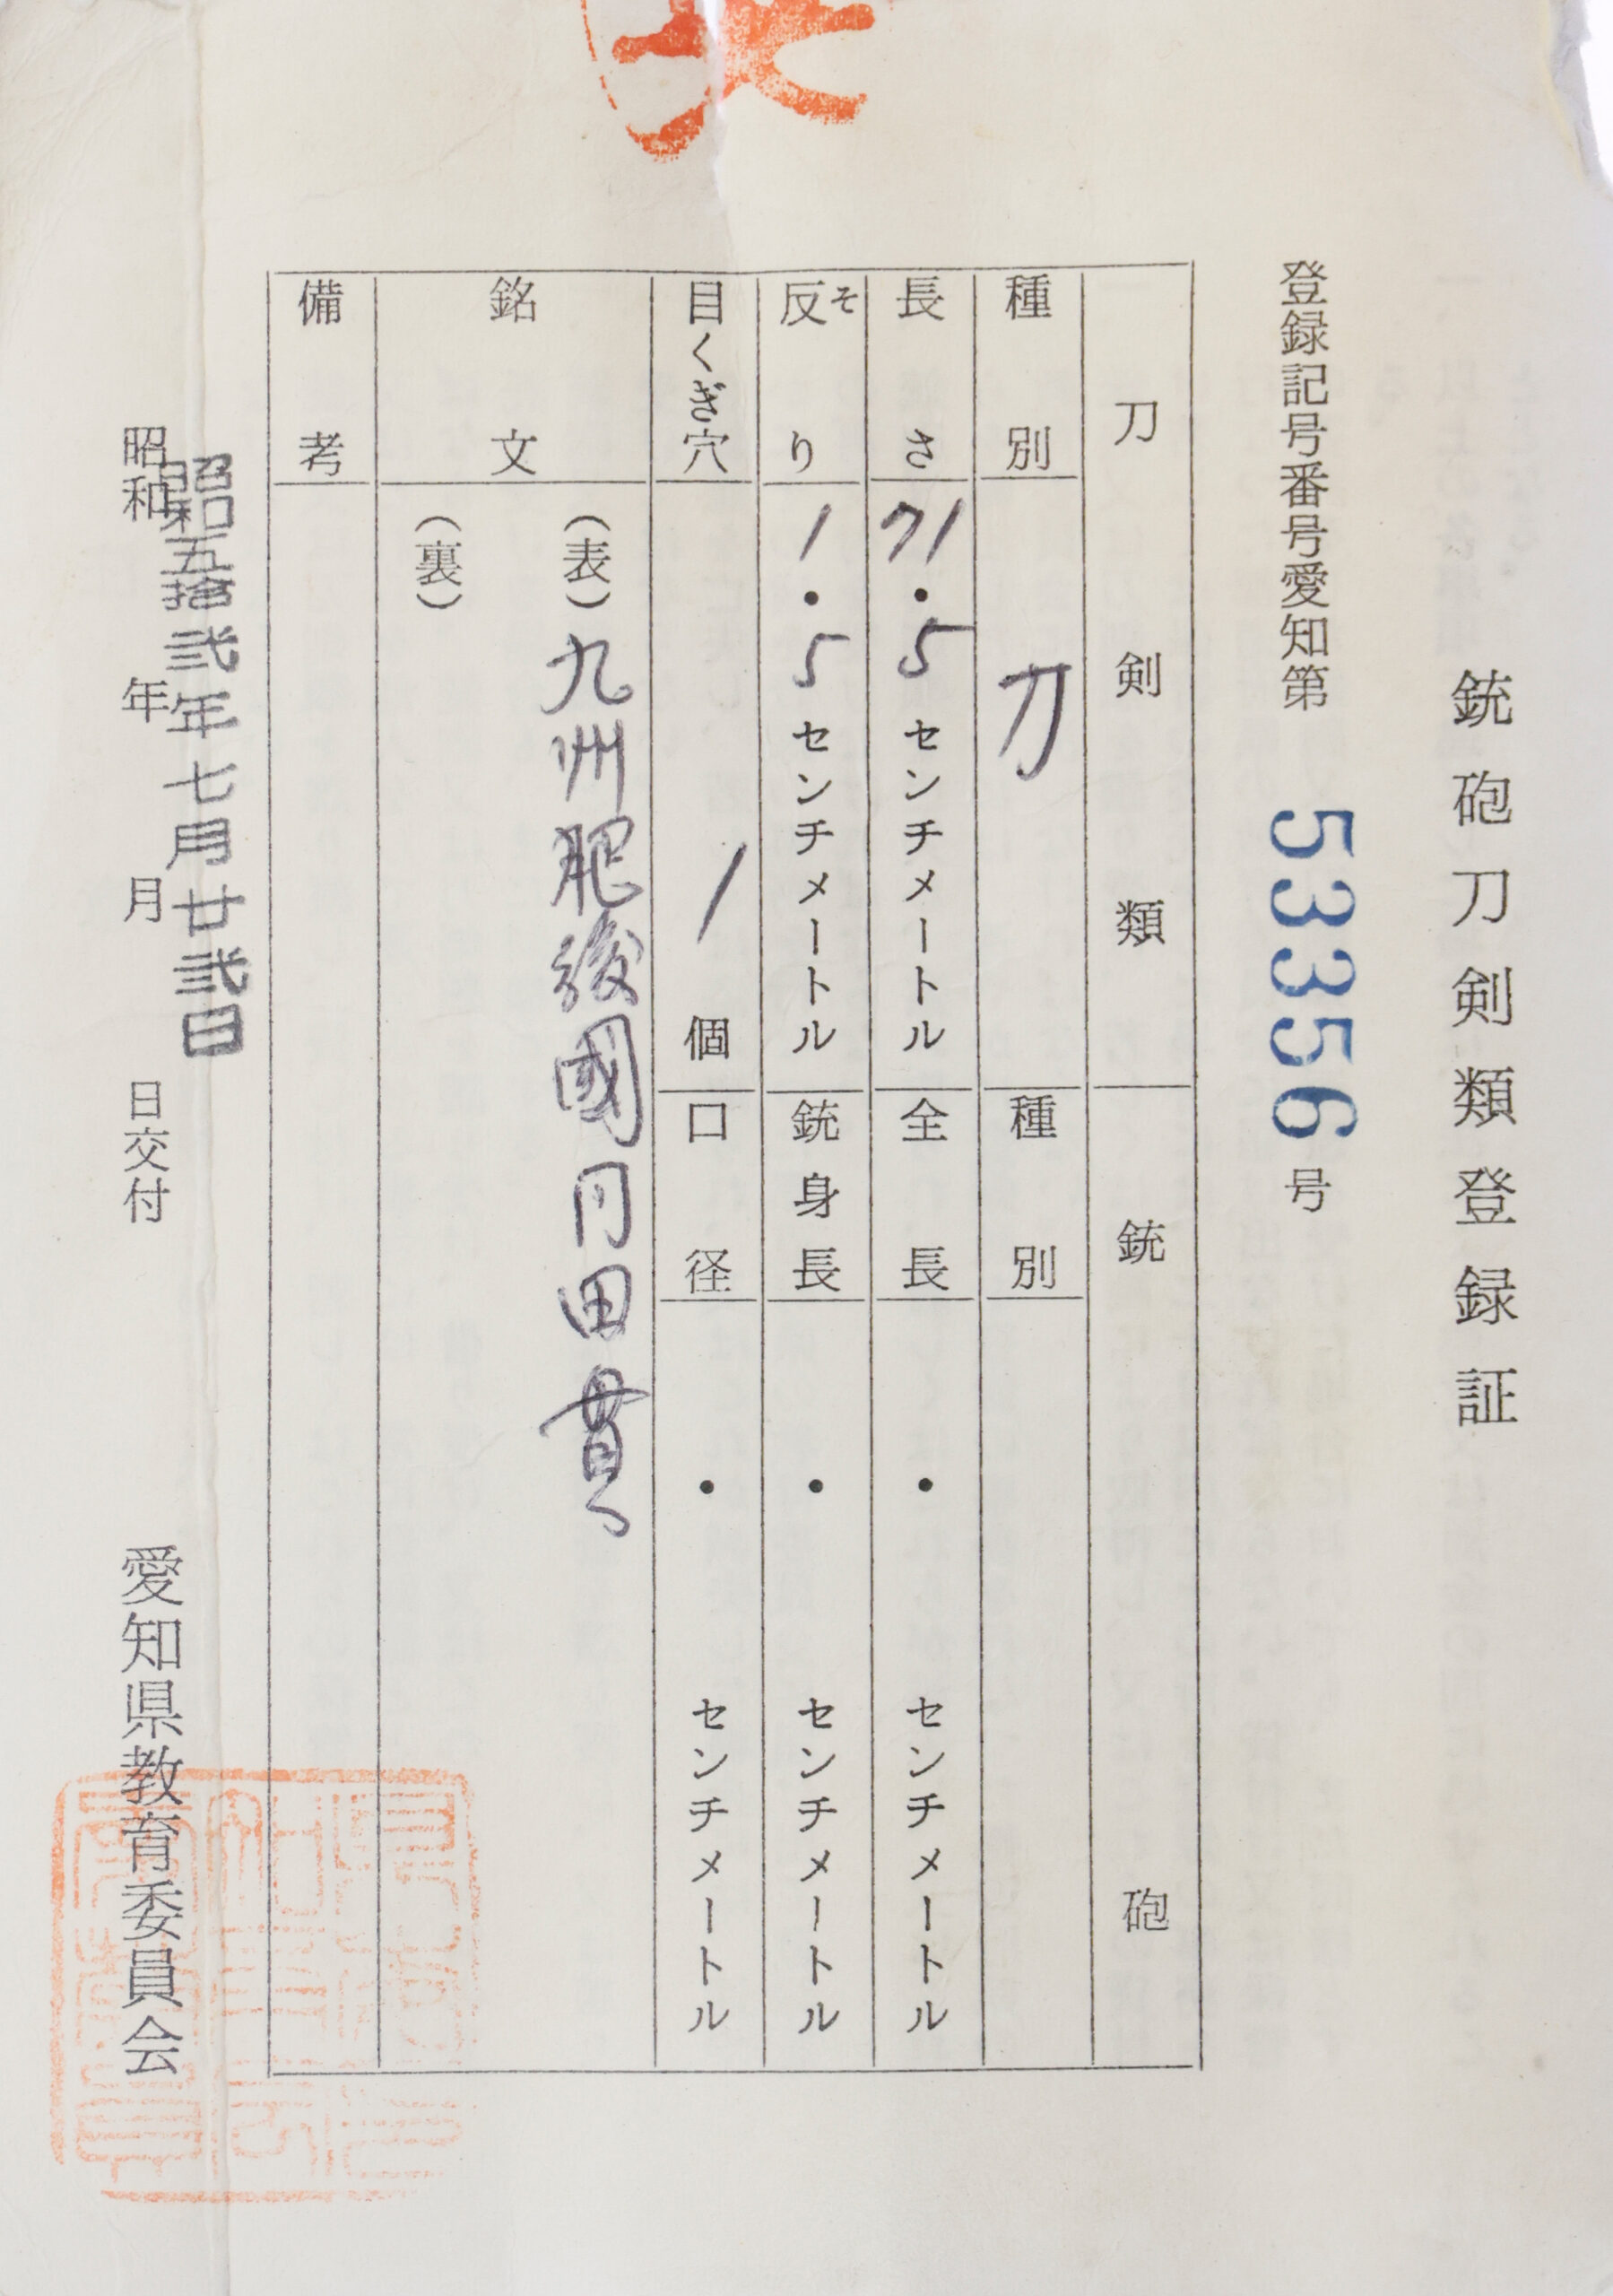 銃砲刀剣類登録証
登録記号番号愛知第 53356 号
刀剣類 銃砲
種別 刀 種別
長さ 71.5センチメートル 全長 ・ センチメートル
反り 1.5センチメートル 銃身長 ・ センチメートル
そ
目くぎ穴 1個 口径 ・ センチメートル
銘文 (表)九州肥後國同田貫
(裏)
備考
昭和五拾弐年七月廿弐日
昭和 年 月 日交付
愛知県教育委員会